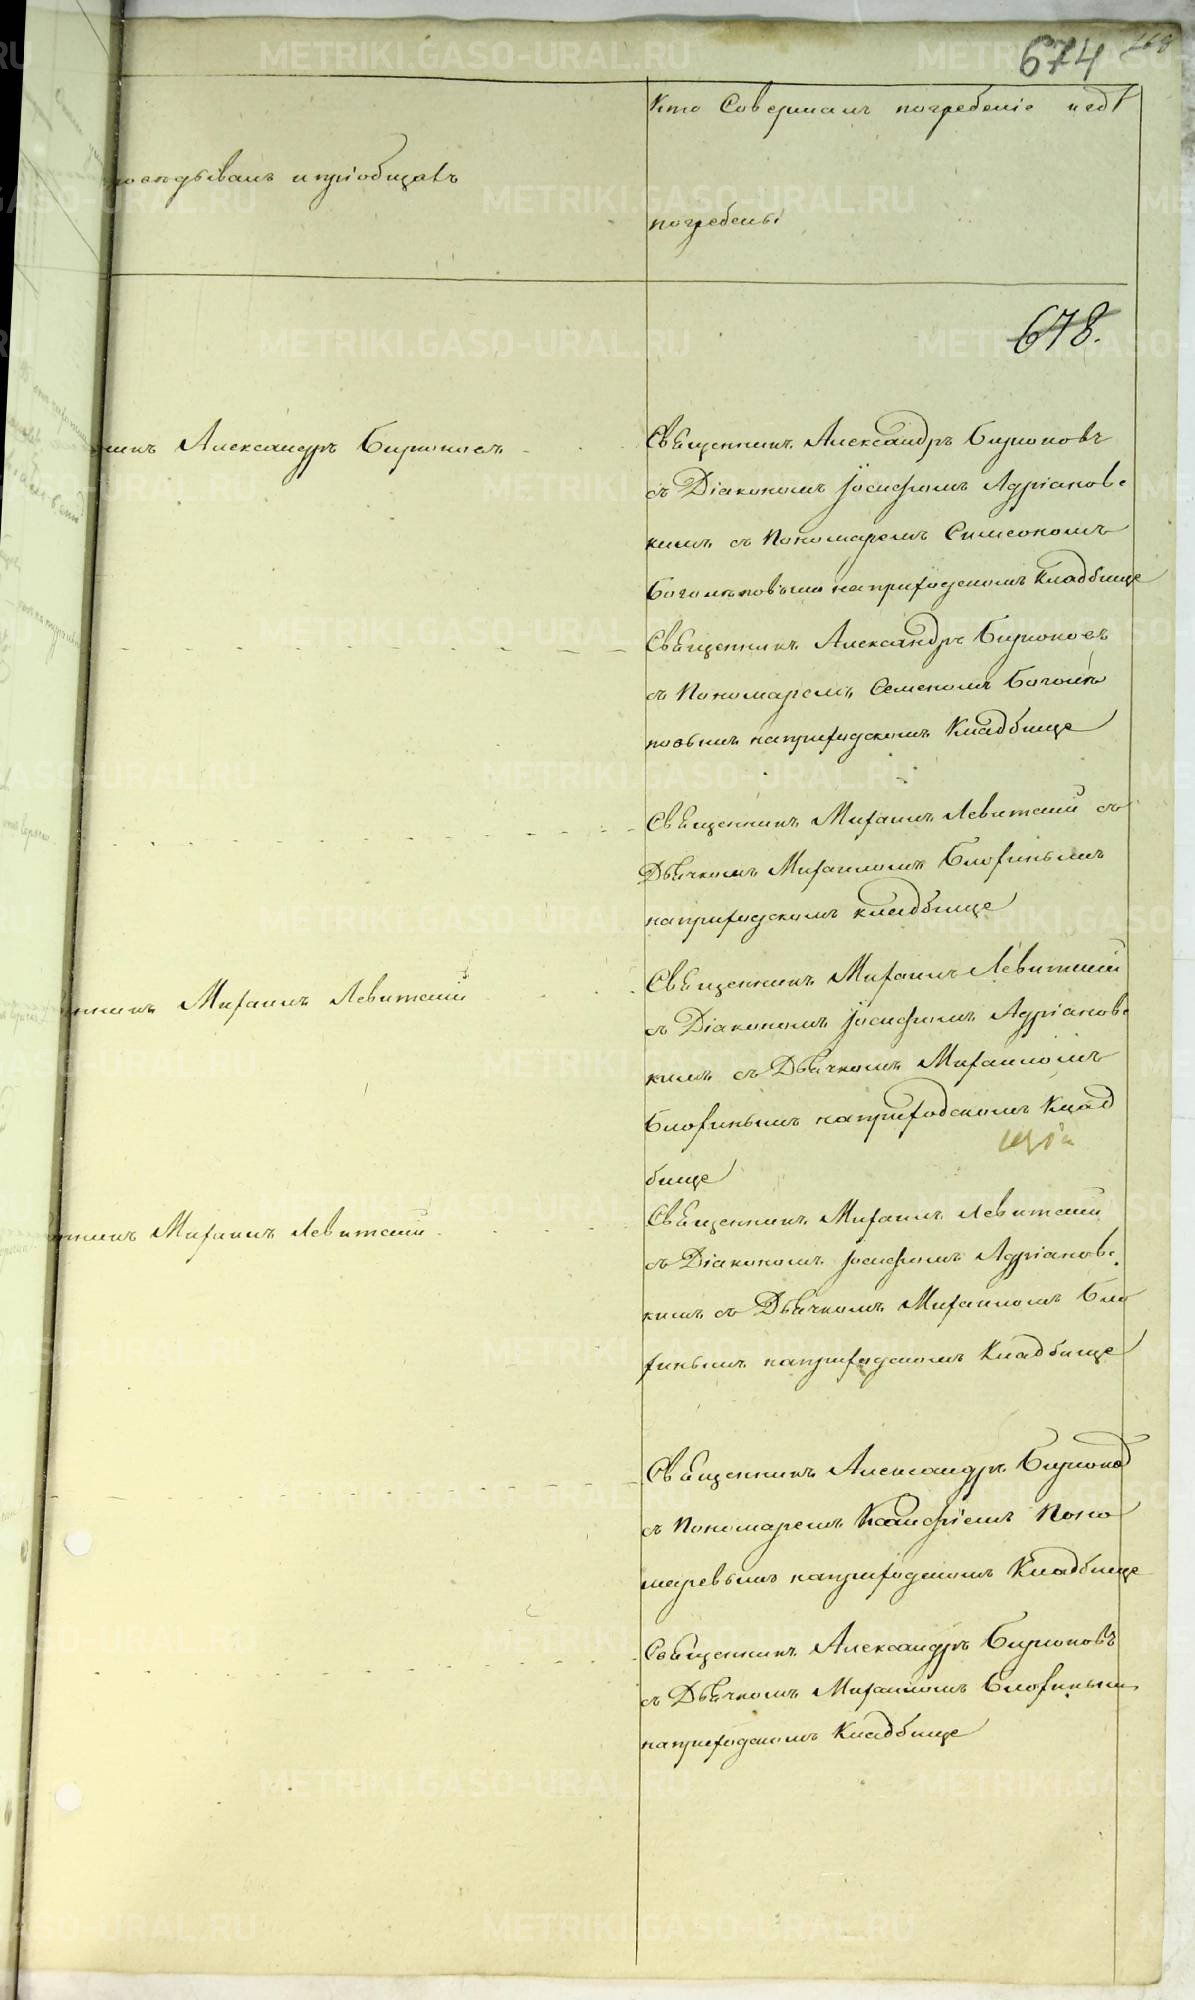 674
Кто Совершалъ погребеніе и гдѣ
погребены
исповѣдывалъ и пріобщалъ
678.
Александръ Бирюковъ
Священникъ Александръ Бирюковъ
съ Діакономъ Іосифомъ Адріановс
кимъ съ Пономаремъ Симеономъ
на приходскомъ Кладбище
Священникъ Александръ Бирюковъ
съ Пономаремъ Семеномъ
на приходскомъ Кладбище
Священникъ Михаилъ Левитскій съ
Дьячкомъ Михаиломъ Блохинымъ
на приходскомъ кладбище
Михаилъ Левитскій
Священникъ Михаилъ Левитскій
съ Діакономъ Іосифомъ Адріановс
кимъ съ Дьячкомъ Михаиломъ
Блохинымъ на приходскомъ Клад
бище
Михаилъ Левитскій
Священникъ Михаилъ Левитскій
съ Діакономъ Іосифомъ Адріановс
кимъ съ Дьячкомъ Михаиломъ Бло
хинымъ на приходскомъ Кладбище
Священникъ Александръ Бирюковъ
съ Пономаремъ Поно
маревымъ на приходскомъ Кладбище
Священникъ Александръ Бирюковъ
съ Дьячкомъ Михаиломъ Блохинымъ
на приходскомъ Кладбище
METRIKI.GASO-URAL.RU